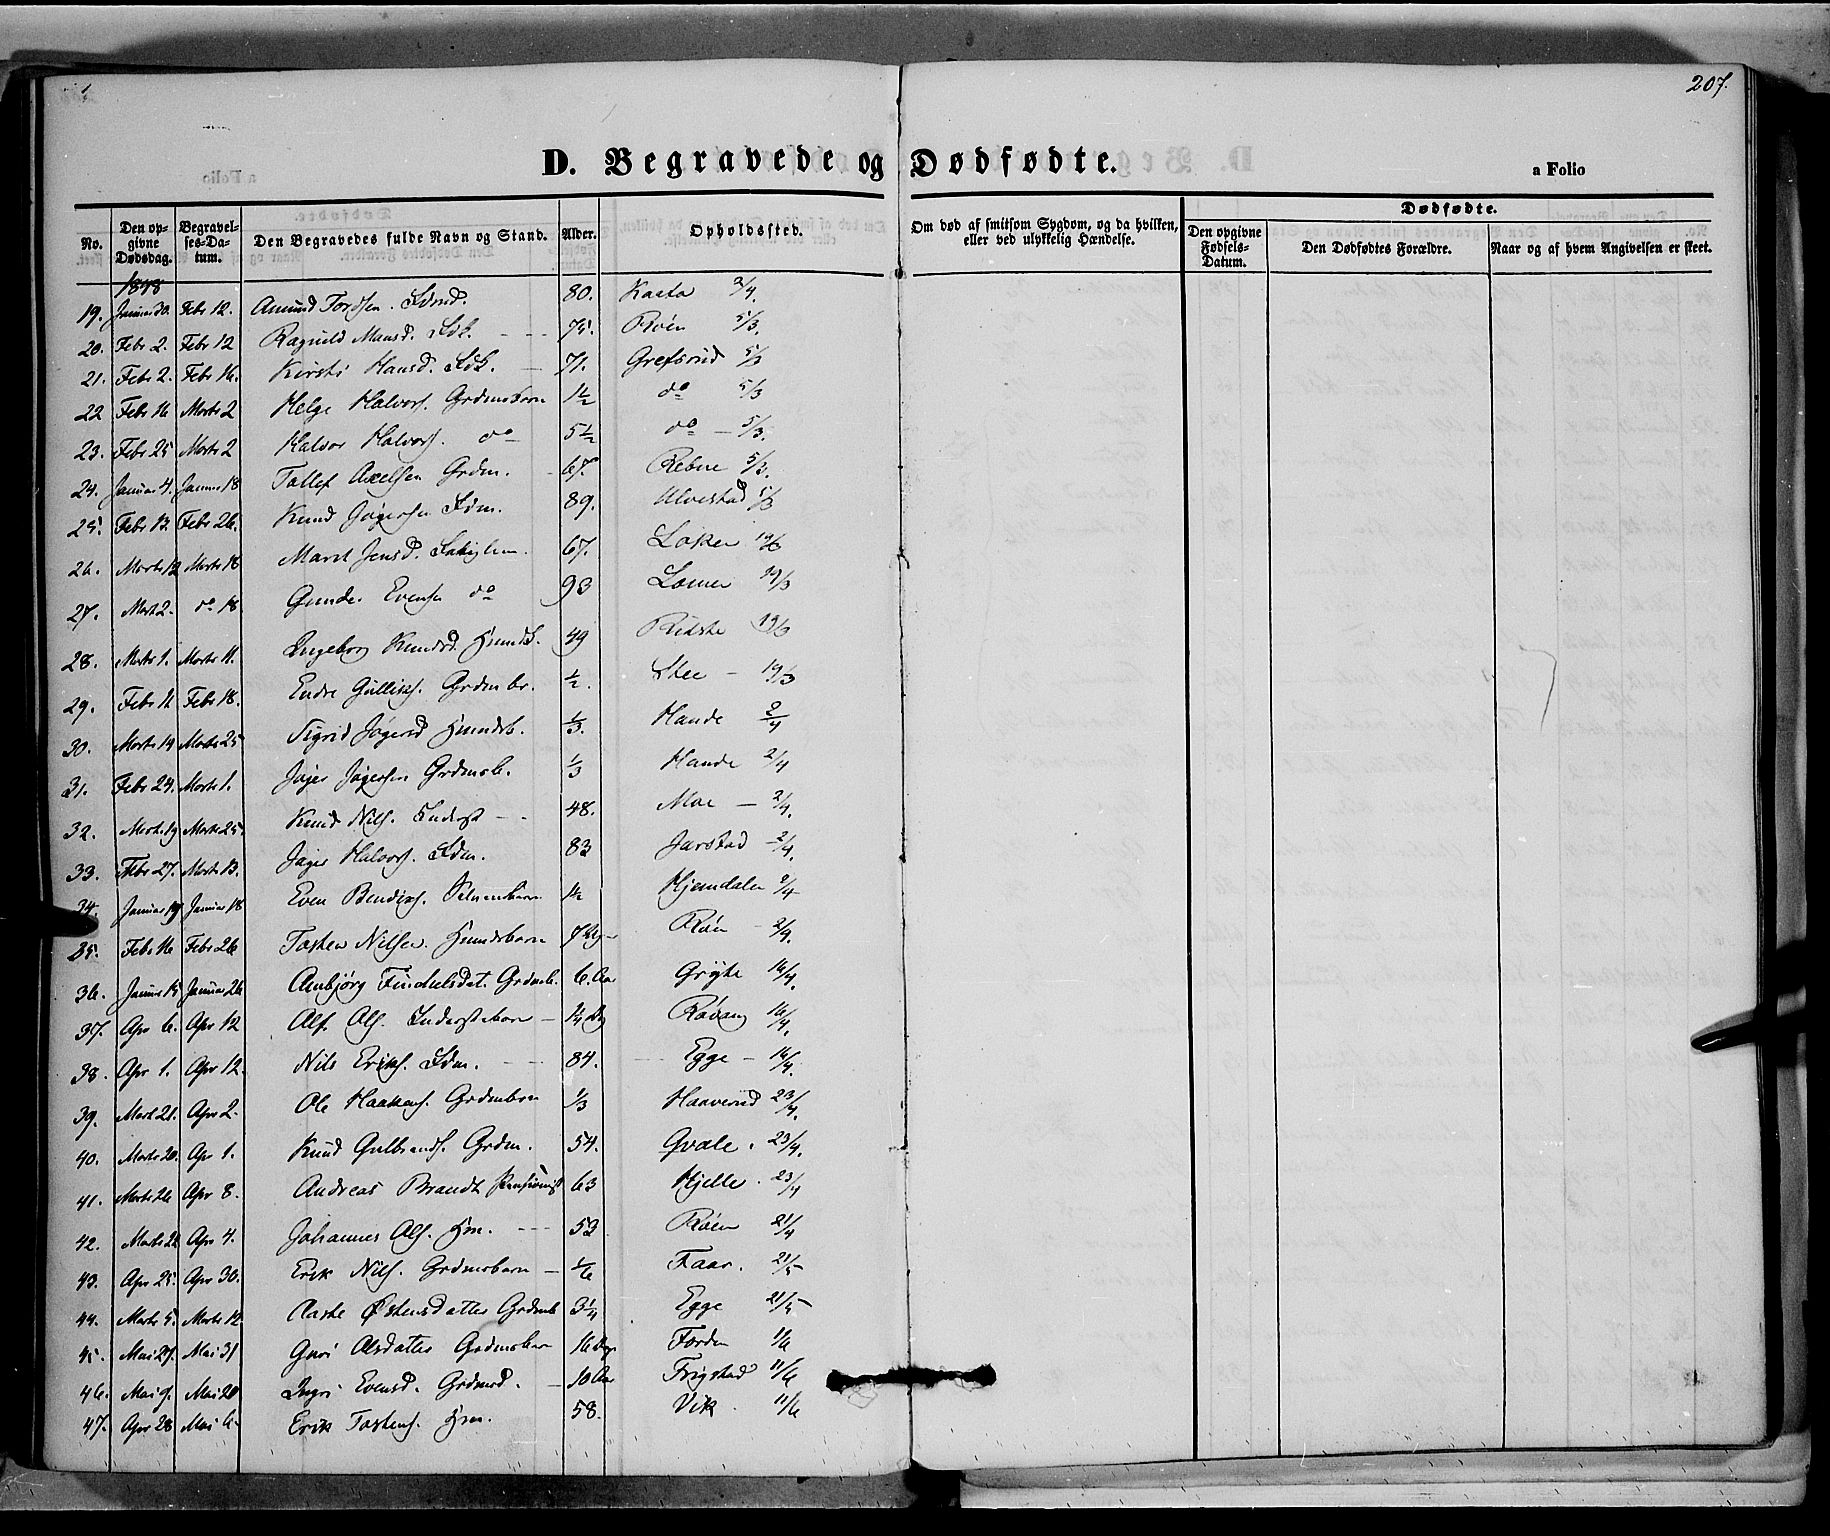 207.
D. Begravede og Dødfødte.
a Folio
No. Den opgivne Dødsdag. Begravelses-Datum. Den Begravedes fulde Navn og Stand. Alder. Opholdssted. Om død af smitsom Sygdom, og da hvilken, eller ved ulykkelig Hændelse. Dødfødte.
Den opgivne Fødsels-Datum. Den Dødfødtes Forældre. Naar og af hvem Angivelsen er skeet.
1848
19. Januar 30. Febr 12. Amund Tordsen. 80. Kasta 2/4.
20. Febr 2. Febr 12 Ragnild Mansd. 75. Røen 5/3.
21. Febr 2. Febr 16. Kirsti Hansd. 71. Grefsrud 5/3
22 Febr 16 Marts 2 Helge Halvors. Grdmsbarn 1 1/2 do 5/3
23. Febr 25 Marts 2 Halvor Halvors. do 5 1/2 do – 5/3.
24. Januar 4. Januar 18 Tollef Axelsen Grdm. 67. Rebne 5/3.
25. Febr 13. Febr 26. Knud Jøgersen Fdm. 89. Ulvestad 5/3
26. Marts 12 Marts 18 Marit Jensd. 67. Loken 19/3
27. Mart 2. do 18 Gunder Evensen do 93 Lomen 19/3
28. Marts 1. Marts 11. Ingeborg Knudsd. 49 Ridste 19/3
29. Febr 11 Febr 18. Endre Gulliks. Grdmbr. 1/2. Stee – 19/3
30. Marts 19 Marts 25 Sigrid Jøgersd 1/3. Hande 2/4
31. Febr 24. Marts 1. Jøger Jøgersen Grdmsb. 1/3 Hande 2/4
32. Marts 19 Marts 25. Knud Nils. Inderst 48. Moe – 2/4.
33. Febr 27. Marts 13. Jøger Halvors. Fdm. 83 Jarstad 2/4.
34. Januar 19 Januar 18 Even Bendiks. 1 1/2 Hjemdalen 2/4
35. Febr 16 Febr 26 Tosten Nilsen. 7 Røen – 2/4.
36. Januar 15 Januar 26 Ambjørg Grdmb. 6. Aar Grøte 16/4.
37. Apr 6. Apr 12 Alf Als. Inderstebarn – 14 Dg Røvang 16/4.
38. Apr 1. Apr 12. Nils Eriks. Fdm. 84. Egge – 16/4.
39. Mart 21. Apr 2. Ole Haakens. Grdmbrn 1/3 Haaverud 23/4.
40. Marts 20. Apr 1. Knud Gulbrands. Grdm. 54. Qvale. 23/4.
41. Marts 26 Apr 8. Andreas Brandt Pensionist 63 Hjelle. 23/4
42. Marts 22 Apr 4. Johannes Als. Hm. 53 Røen 21/4
43. Apr 25. Apr 30. Erik Nils. Grdmsbarn – 1/6 Faar. 21/5
44. Marts 5. Marts 12. Aaste Østensdatter Grdmb 3 1/4 Egge 21/5
45. Mai 27. Mai 31 Guri Alsdatter Grdmsbarn 16 Dge Forden 1/6
46. Mai 9. Mai 20 Ingri Evensd. Grdmsd. – 10 Aar Frigstad 11/6
47. Apr 28 Mai 6. Erik Tostens. Hm. 58. Vik. 11/6